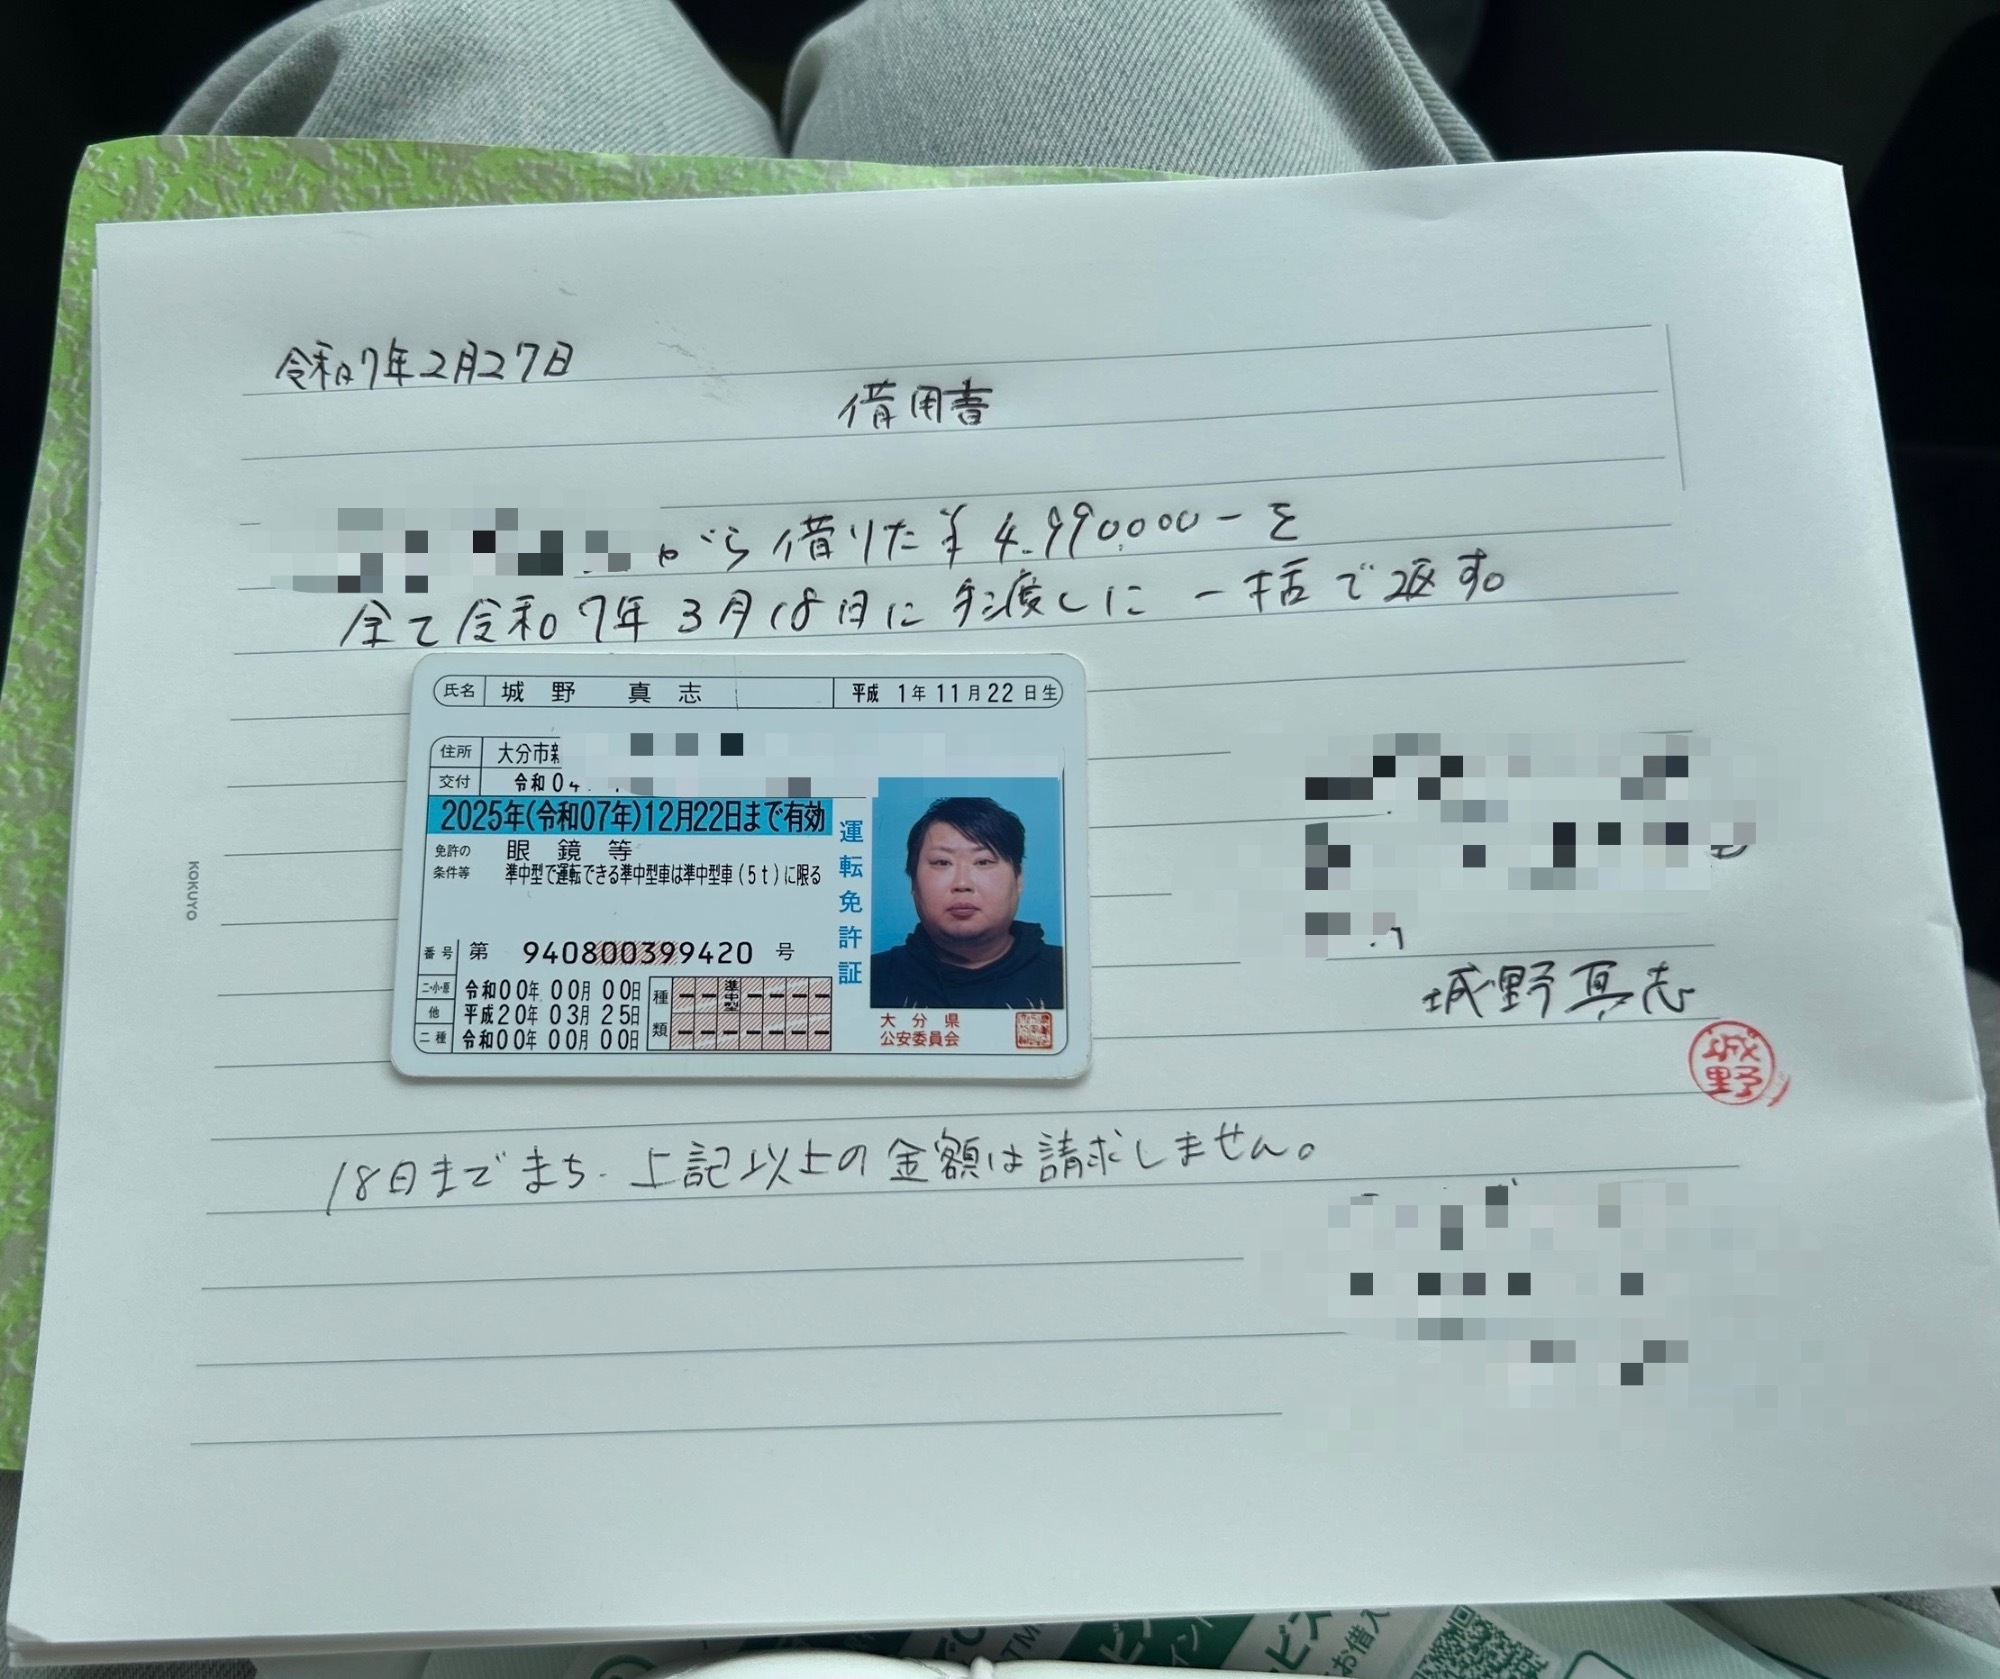 令和7年2月27日
借用書
から借りた¥4.990.000-を
全て令和07年3月18日に手渡しに一括で返す。
氏名 城野 真志 平成 1年11月22日生
住所 大分市新
交付 令和04
2025年(令和07年)12月22日まで有効
免許の条件等 眼鏡等
準中型で運転できる準中型車は準中型車(5t)に限る
運転免許証
番号 第 940800399420 号
二・小・原 令和00年00月00日
他 平成20年03月25日
二種 令和00年00月00日
種類 準中型
大分県
公安委員会
KOKUYO
城野真志
城野
18日までまち、上記以上の金額は請求しません。